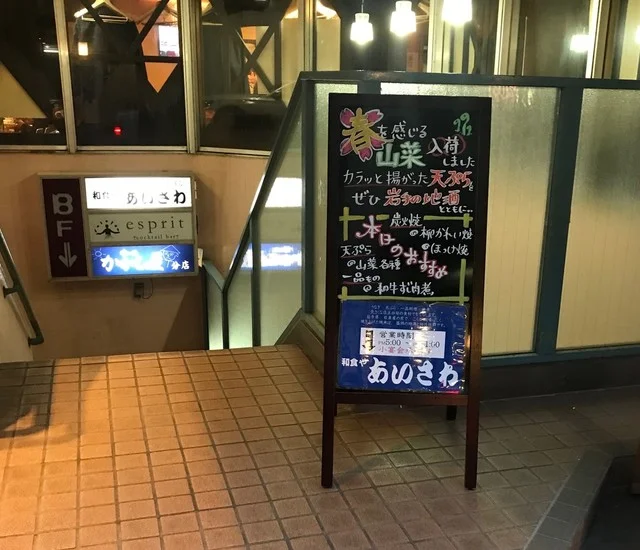 BF
和食や あいさわ
esprit
cocktail bar
分店
春を感じる
山菜入荷
しました
カラッと揚がった天ぷらを
ぜひ岩手の地酒
とともに…
本日のおすすめ
炭火焼
@柳かれい焼
@ほっけ焼
天ぷら
@山菜各種
一品もの
@和牛すじ肉煮
営業時間
PM5:00
小宴会
和食や あいさわ